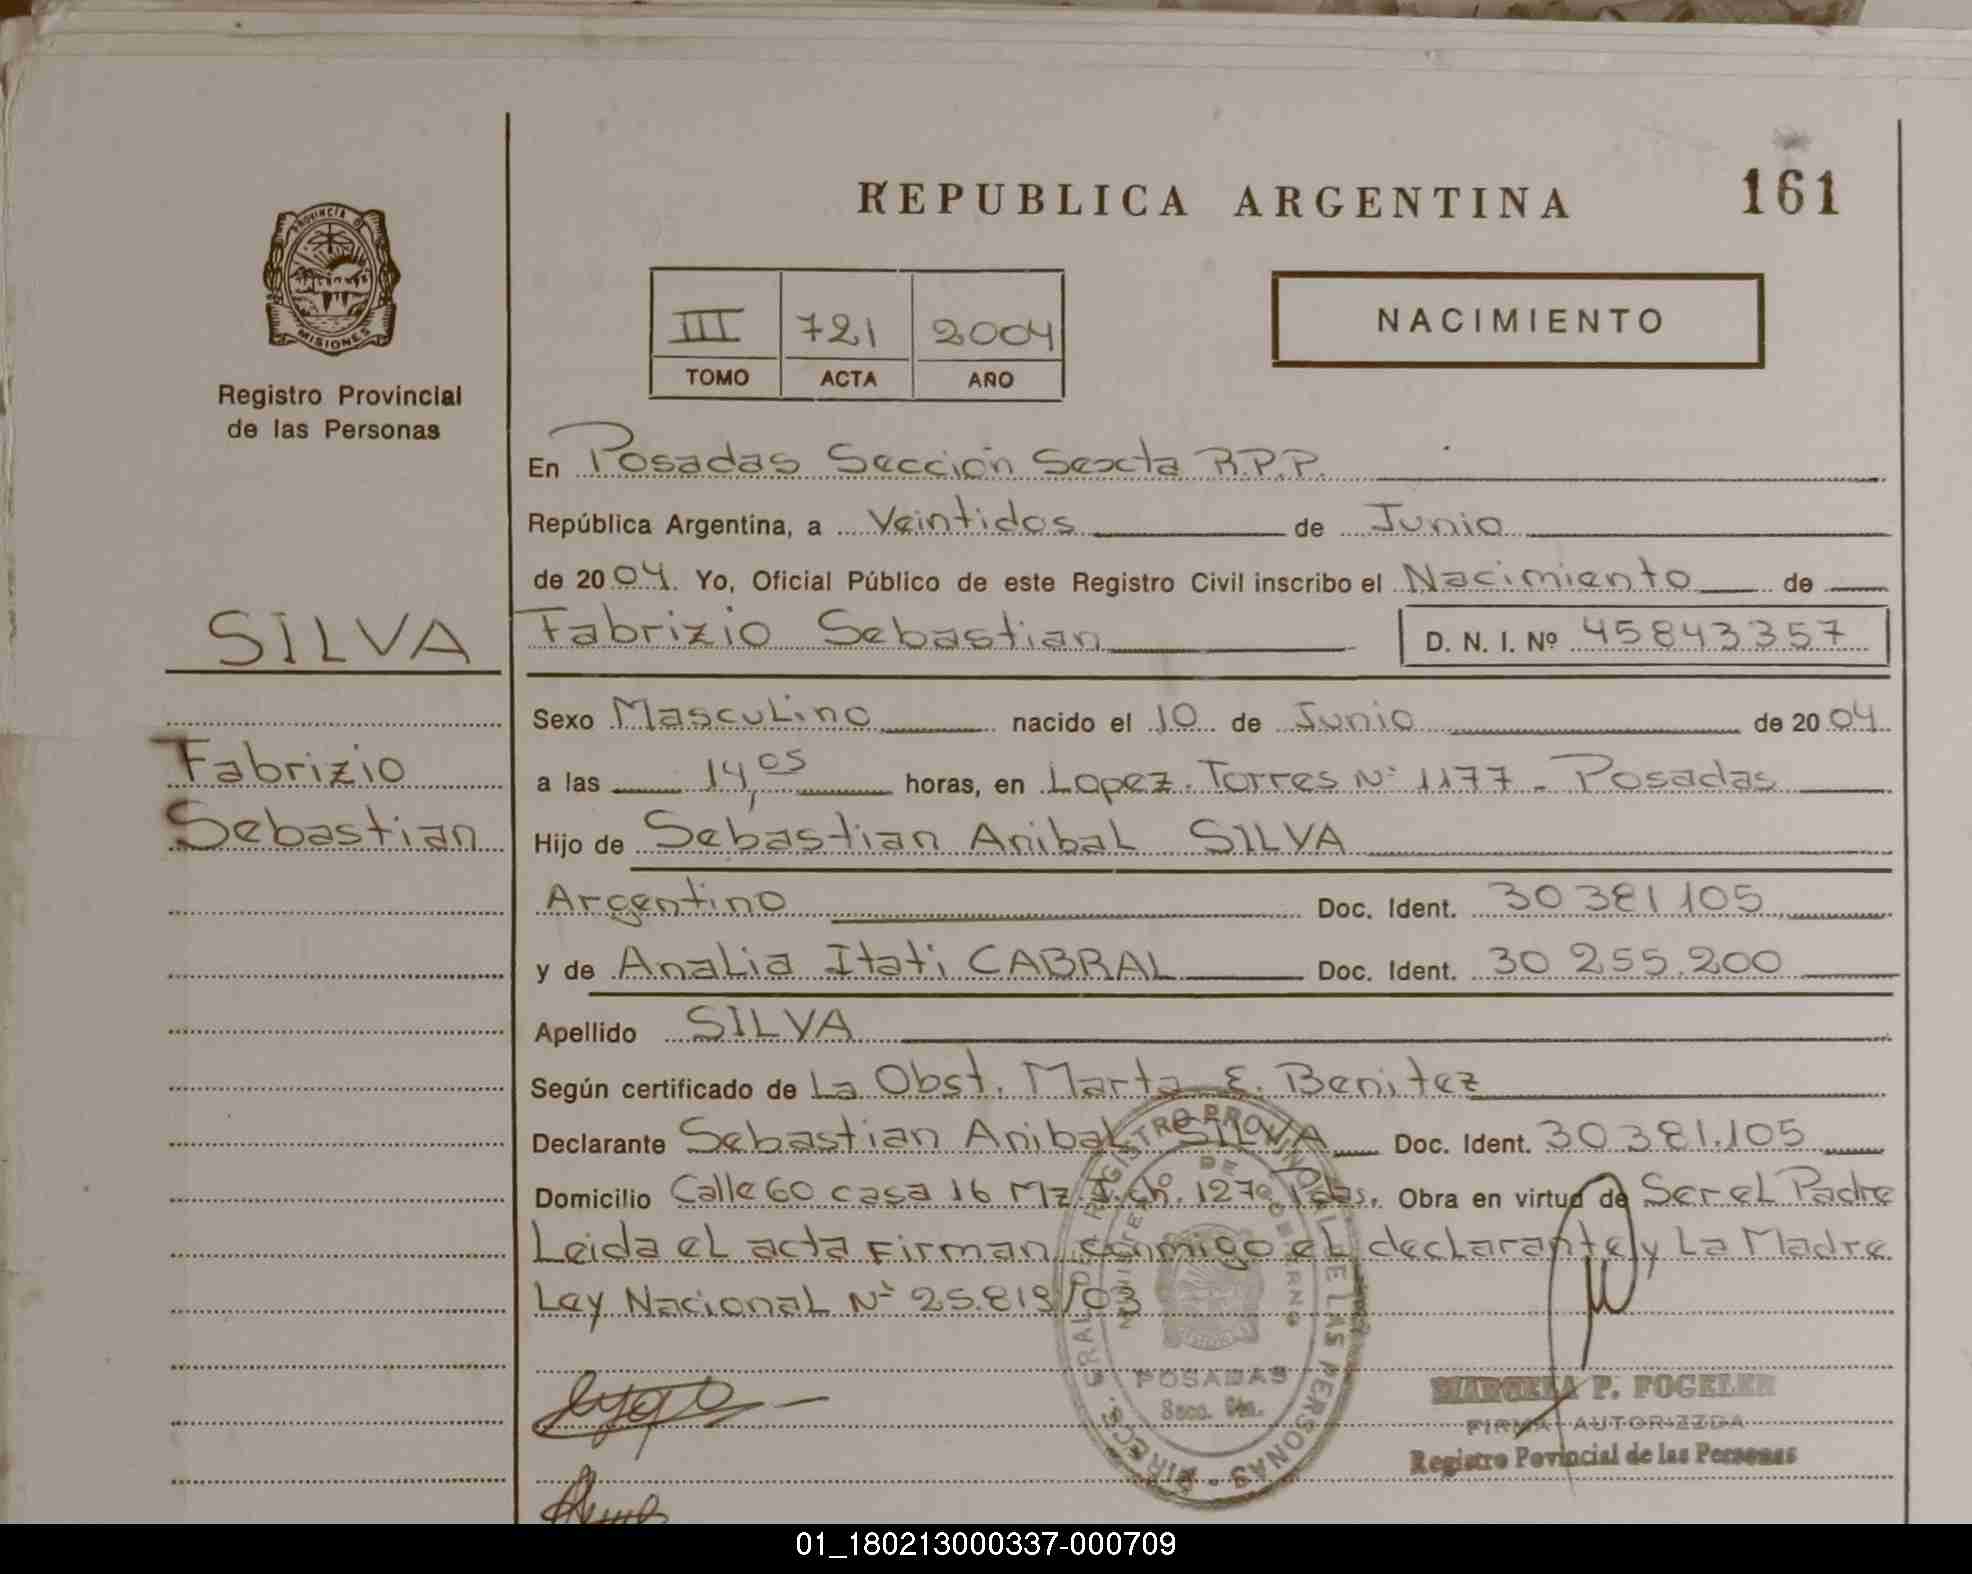 REPUBLICA ARGENTINA
161
PROVINCIA DE
MISIONES
Registro Provincial
de las Personas
III 721 2004
TOMO ACTA AÑO
NACIMIENTO
En Posadas Sección Sexta R.P.P.
República Argentina, a Veintidos de Junio
de 2004. Yo, Oficial Público de este Registro Civil inscribo el Nacimiento de
SILVA
Fabrizio Sebastian D. N. I. Nº 45843357
Sexo Masculino nacido el 10 de Junio de 2004
Fabrizio
a las 14,05 horas, en Lopez Torres Nº 1177 - Posadas
Sebastian
Hijo de Sebastian Anibal SILVA
Argentino Doc. Ident. 30 381 105
y de Analia Itati CABRAL Doc. Ident. 30 255.200
Apellido SILVA
Según certificado de La Obst. Marta E. Benitez
Declarante Sebastian Anibal SILVA Doc. Ident. 30.381.105
Domicilio Calle 60 casa 16 Mz. I. ch. 127 Pdas. Obra en virtud de Ser el Padre
Leida el acta Firman conmigo el declarante y La Madre
Ley Nacional Nº 25.819/03
MINISTERIO DE GOBIERNO
REGISTRO PROVINCIAL DE LAS PERSONAS
POSADAS
Secc. 6ta.
MARCELA P. FOGELER
FIRMA AUTORIZZDA
Registro Povincial de las Personas
01_180213000337-000709